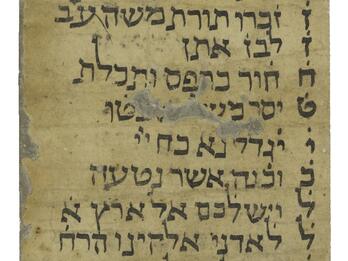 ז זכרו תורת משה עב
ז לבז אתן
ח חור כרפס ותכלת
ט
י יגדל נא כח יי
כ וכנה אשר נטעה
ל וישלכם אל ארץ א
ל לאדני אלהינו הרח